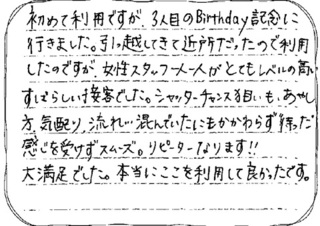 初めて利用ですが、3人目のBirthday記念に
行きました。引っ越してきて近所だったので利用
したのですが、女性スタッフ一人一人がとてもレベルの高い
すばらしい接客でした。シャッターチャンス狙いも、あやし
方、気配り、流れ…混んでいたにもかかわらず待った
感じを受けずスムーズ。リピーターなります!!
大満足でした。本当にここを利用して良かったです。